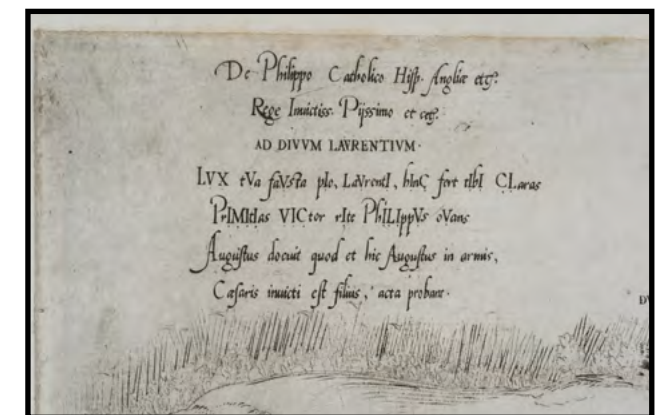 De Philippo Catholico Hisp. Angliæ etc?
Rege Inuictiss. Pijssimo et cęt?
AD DIVVM LAVRENTIVM.
LVX tVa faVsta pIo, LaVrentI, hInC fert tIbI CLaras
PrIMItIas VICtor rIte PhILIppVs oVans
Augustus docuit quod et hic Augustus in armis,
Cæsaris inuicti est filius, acta probant.